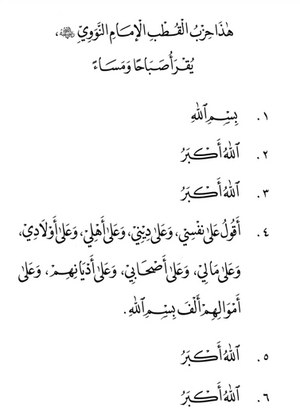 هٰذَا حِزْبُ الْقُطْبِ الْإِمَامِ النَّوَوِيِّ ﷺ،
يُقْرَأُ صَبَاحًا وَمَسَاءً
١. بِسْمِ اللهِ
٢. اَللهُ أَكْبَرُ
٣. اَللهُ أَكْبَرُ
٤. أَقُولُ عَلَى نَفْسِيْ، وَعَلَى دِيْنِيْ، وَعَلَى أَهْلِيْ، وَعَلَى أَوْلَادِيْ،
وَعَلَى مَالِيْ، وَعَلَى أَصْحَابِيْ، وَعَلَى أَدْيَانِهِمْ، وَعَلَى
أَمْوَالِهِمْ أَلْفَ بِسْمِ اللهِ.
٥. اَللهُ أَكْبَرُ
٦. اَللهُ أَكْبَرُ